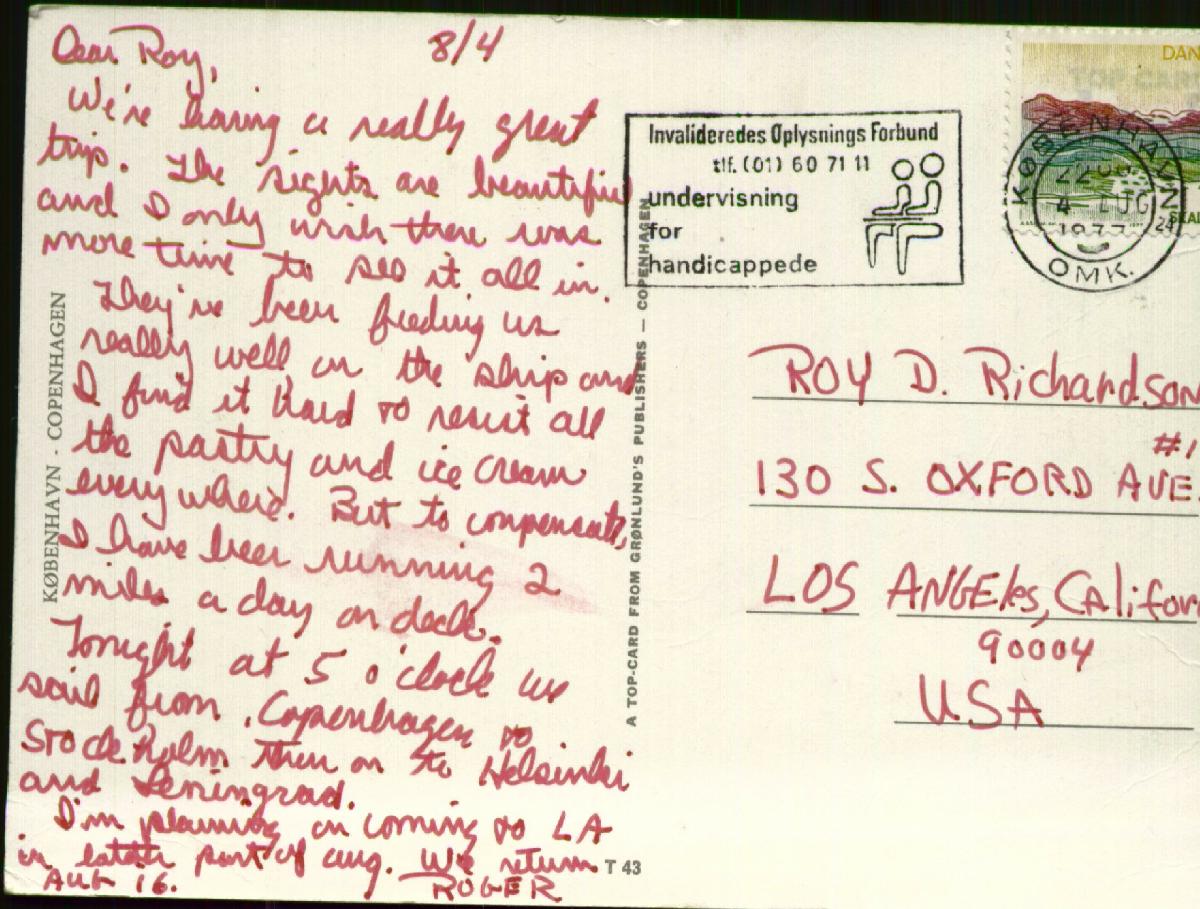 Dear Roy,
8/4
We're having a really great
trip. The sights are beautiful
and I only wish there was
more time to see it all in.
They've been feeding us
really well on the ship and
I find it hard to resist all
the pastry and ice cream
everywhere. But to compensate,
I have been running 2
miles a day on deck.
Tonight at 5 o'clock we
sail from Copenhagen to
Stockholm then on to Helsinki
and Leningrad.
I'm planning on coming to LA
in latter part of Aug. We return
AUG 16.
ROGER
KØBENHAVN - COPENHAGEN
A TOP-CARD FROM GRØNLUND'S PUBLISHERS — COPENHAGEN
T 43
Invalideredes Oplysnings Forbund
tlf. (01) 60 71 11
undervisning
for
handicappede
DAN
KØBENHAVN
OMK.
24
ROY D. Richardson
#1
130 S. OXFORD AVE
LOS ANGELES, Califor
90004
USA